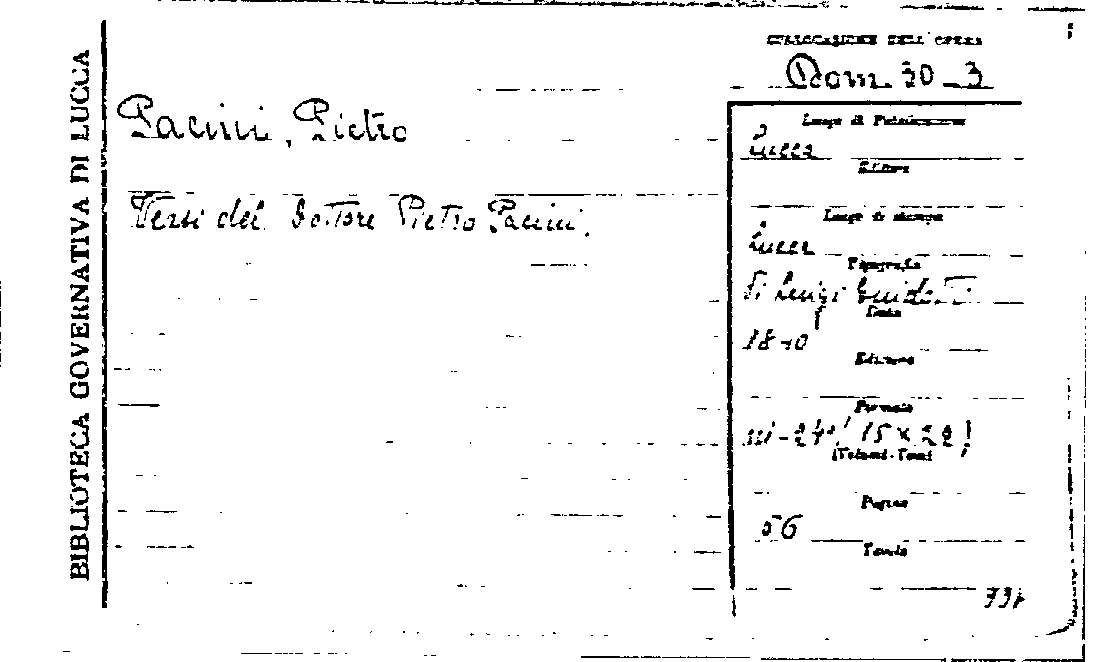 BIBLIOTECA GOVERNATIVA DI LUCCA
COLLOCAZIONE DELL'OPERA
Dom. 30_3
Pacini, Pietro
Versi del Dottore Pietro Pacini.
Luogo di Pubblicazione
Lucca
Editore
Luogo di stampa
Lucca
Tipografia
di Luigi Guidotti
Data
Edizione
Formato
in-24° (15×22)
(Volumi-Tomi
Pagine
56
Tavole